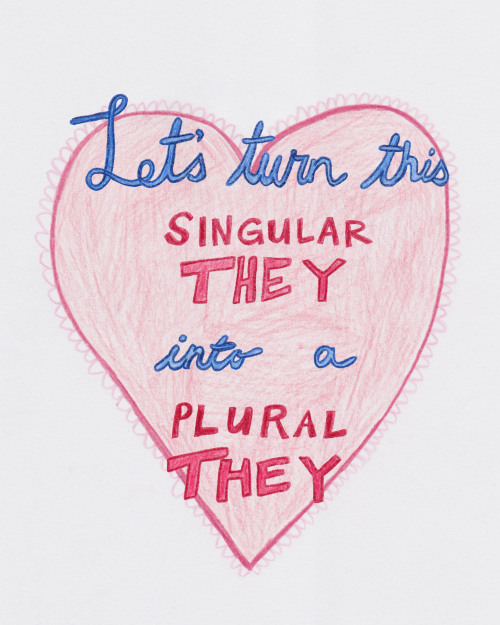 Let's turn this
SINGULAR
THEY
into a
PLURAL
THEY